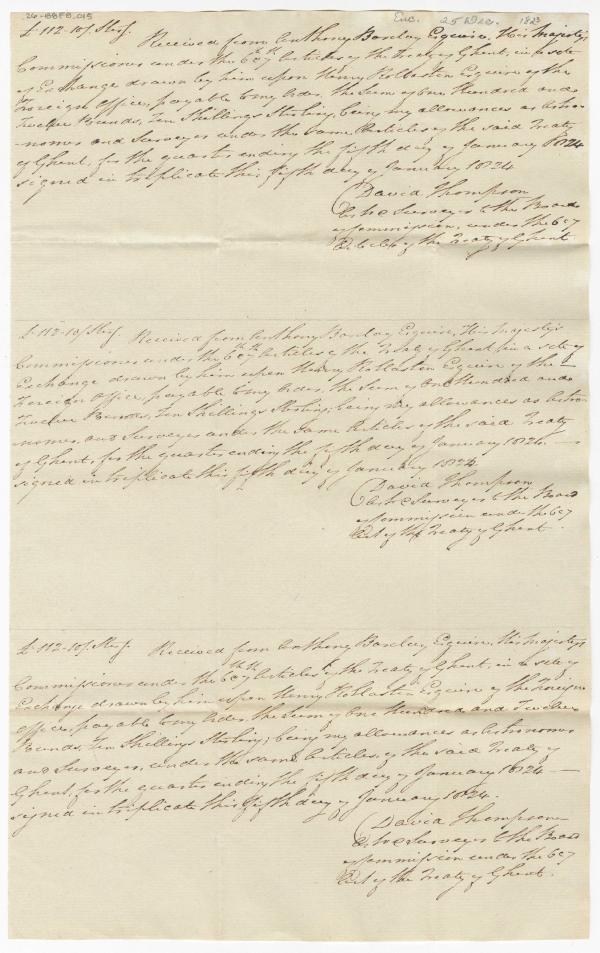 26-BBFB.015
Enc. 25 Dec. 1823
£112-10/. Sterg.
Received from Anthony Barclay Esquire, His Majesty's
Commissioner under the 6 & 7 th th Articles of the Treaty of Ghent, in a sett
of Exchange drawn by him upon Henry Rollaston Esquire of the
Foreign Office, payable to my Order, the Sum of One Hundred and
Twelve Pounds, Ten Shillings Sterling, being my allowances as Astro-
-nomer and Surveyor under the same Articles of the said Treaty
of Ghent, for the quarter ending the fifth day of January 1824
signed in triplicate this fifth day of January 1824
David Thompson
Ast & Surveyor to the Board
of Commission, under the 6 & 7
Articles of the Treaty of Ghent
£112-10/. Sterg.
Received from Anthony Barclay Esquire, His Majesty's
Commissioner under the 6 & 7 th th Articles of the Treaty of Ghent in a sett of
Exchange drawn by him upon Henry Rollaston Esquire of the
Foreign Office, payable to my Order, the Sum of One Hundred and
Twelve Pounds, Ten Shillings Sterling; being my allowances as Astro
nomer, and Surveyor under the same Articles of the said Treaty
of Ghent, for the quarter ending the fifth day of January 1824. —
signed in triplicate this fifth day of January 1824.
David Thompson
Ast & Surveyor to the Board
of Commission under the 6 & 7
Art of the Treaty of Ghent.
£112-10/. Sterg.
Received from Anthony Barclay Esquire, His Majesty's
Commissioner under the 6 & 7 th th Articles of the Treaty of Ghent, in a sett of
Exchange drawn by him upon Henry Rollaston Esquire of the Foreign
Office, payable to my Order, the Sum of One Hundred and Twelve
Pounds, Ten Shillings Sterling; being my allowances as Astronomer
and Surveyor, under the same Articles, of the said Treaty of
Ghent, for the quarter ending the fifth day of January 1824 —
signed in triplicate this fifth day of January 1824.
David Thompson
Ast & Surveyor to the Board
of Commission under the 6 & 7
Art of the Treaty of Ghent.